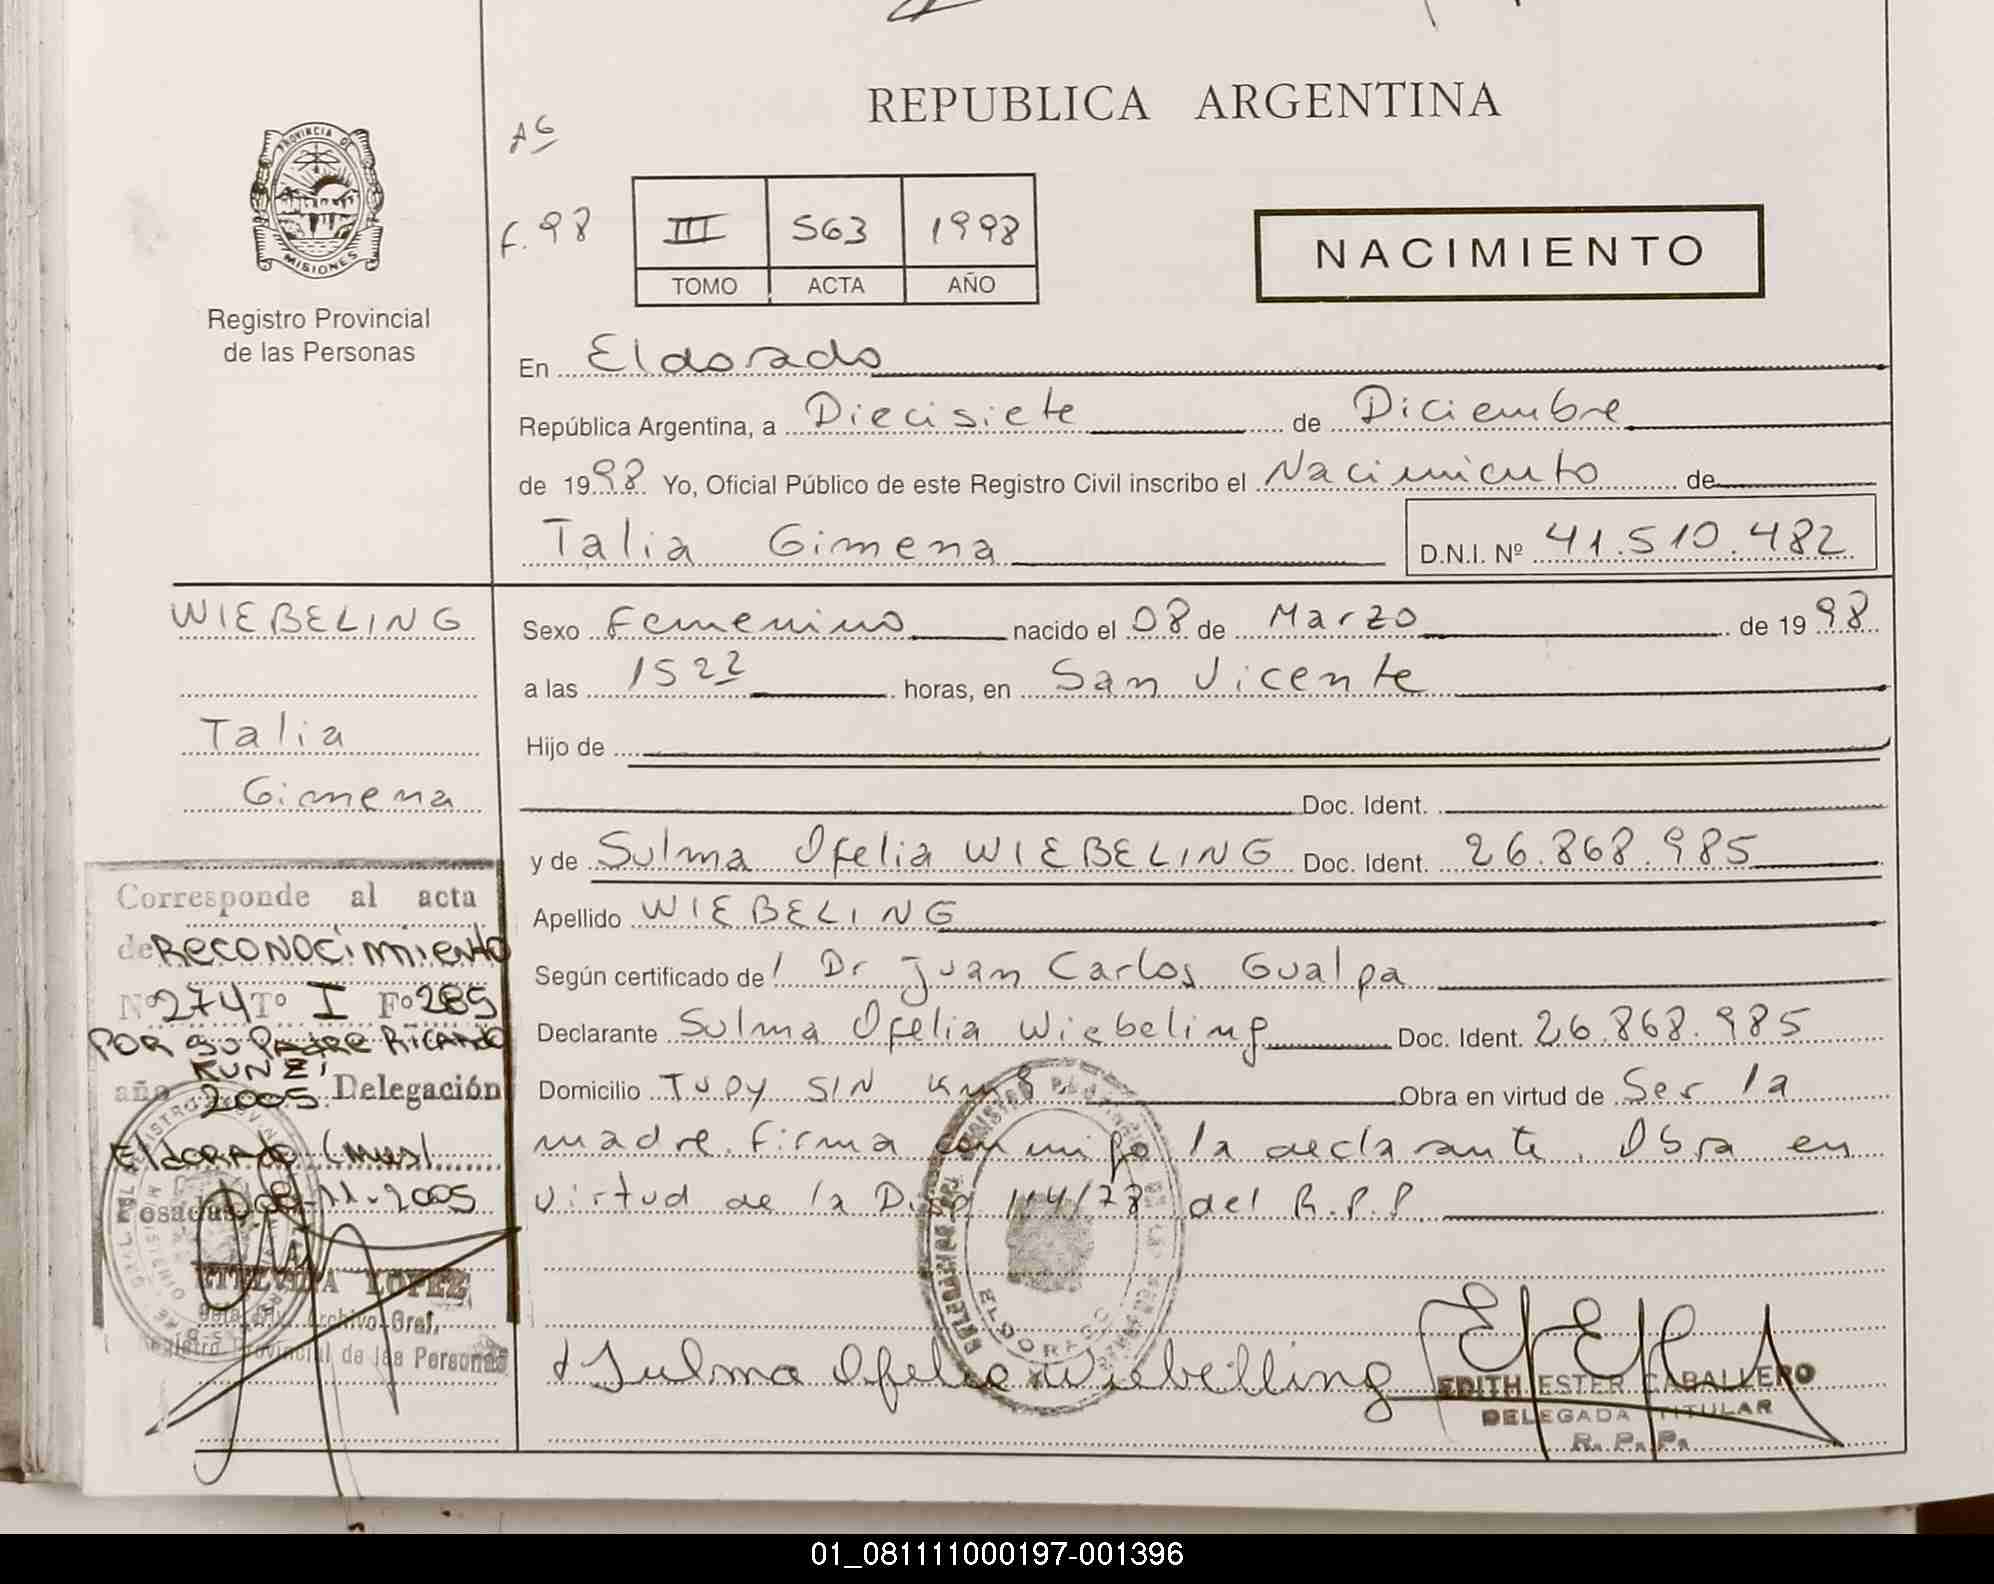 REPUBLICA ARGENTINA
PROVINCIA DE
MISIONES
Registro Provincial
de las Personas
AG
F. 98
III 563 1998
TOMO ACTA AÑO
NACIMIENTO
En Eldorado
República Argentina, a Diecisiete de Diciembre
de 1998 Yo, Oficial Público de este Registro Civil inscribo el Nacimiento de
Talia Gimena D.N.I. Nº 41.510.482
WIEBELING
Talia
Gimena
Sexo Femenino nacido el 08 de Marzo de 1998
a las 15 22 horas, en San Vicente
Hijo de
Doc. Ident.
y de Sulma Ofelia WIEBELING Doc. Ident. 26.868.985
Apellido WIEBELING
Según certificado de Dr Juan Carlos Gualpa
Declarante Sulma Ofelia Wiebeling Doc. Ident. 26.868.985
Domicilio Tupy SIN Km 8 Obra en virtud de Ser la
madre. Firma conmigo la declarante. Obra en
virtud de la Disp 114/78 del R.P.P.
Corresponde al acta
de RECONOCIMIENTO
Nº 274 Tº I Fº 285
POR SU PADRE RICARDO
KUNZ
año 2005 Delegación
ElDORADO (Mnes)
Posadas, 11-2005
LOPEZ
Archivo Gral.
Registro Provincial de las Personas
ELDORADO
Sulma Ofelia Wiebelling
EDITH ESTER CABALLERO
DELEGADA TITULAR
R. P. P.
01_081111000197-001396